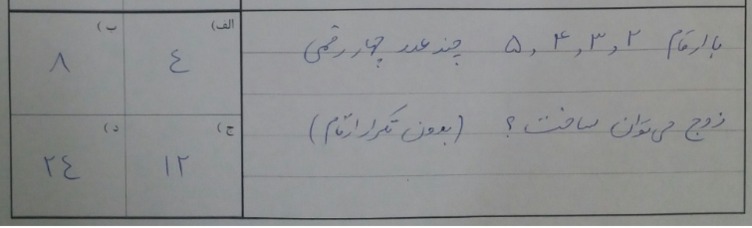 با ارقام ۲ , ۳ , ۴ , ۵ چند عدد چهار رقمی
زوج می‌توان ساخت ؟ (بدون تکرار ارقام)
الف) ٤
ب) ۸
ج) ۱۲
د) ۲٤